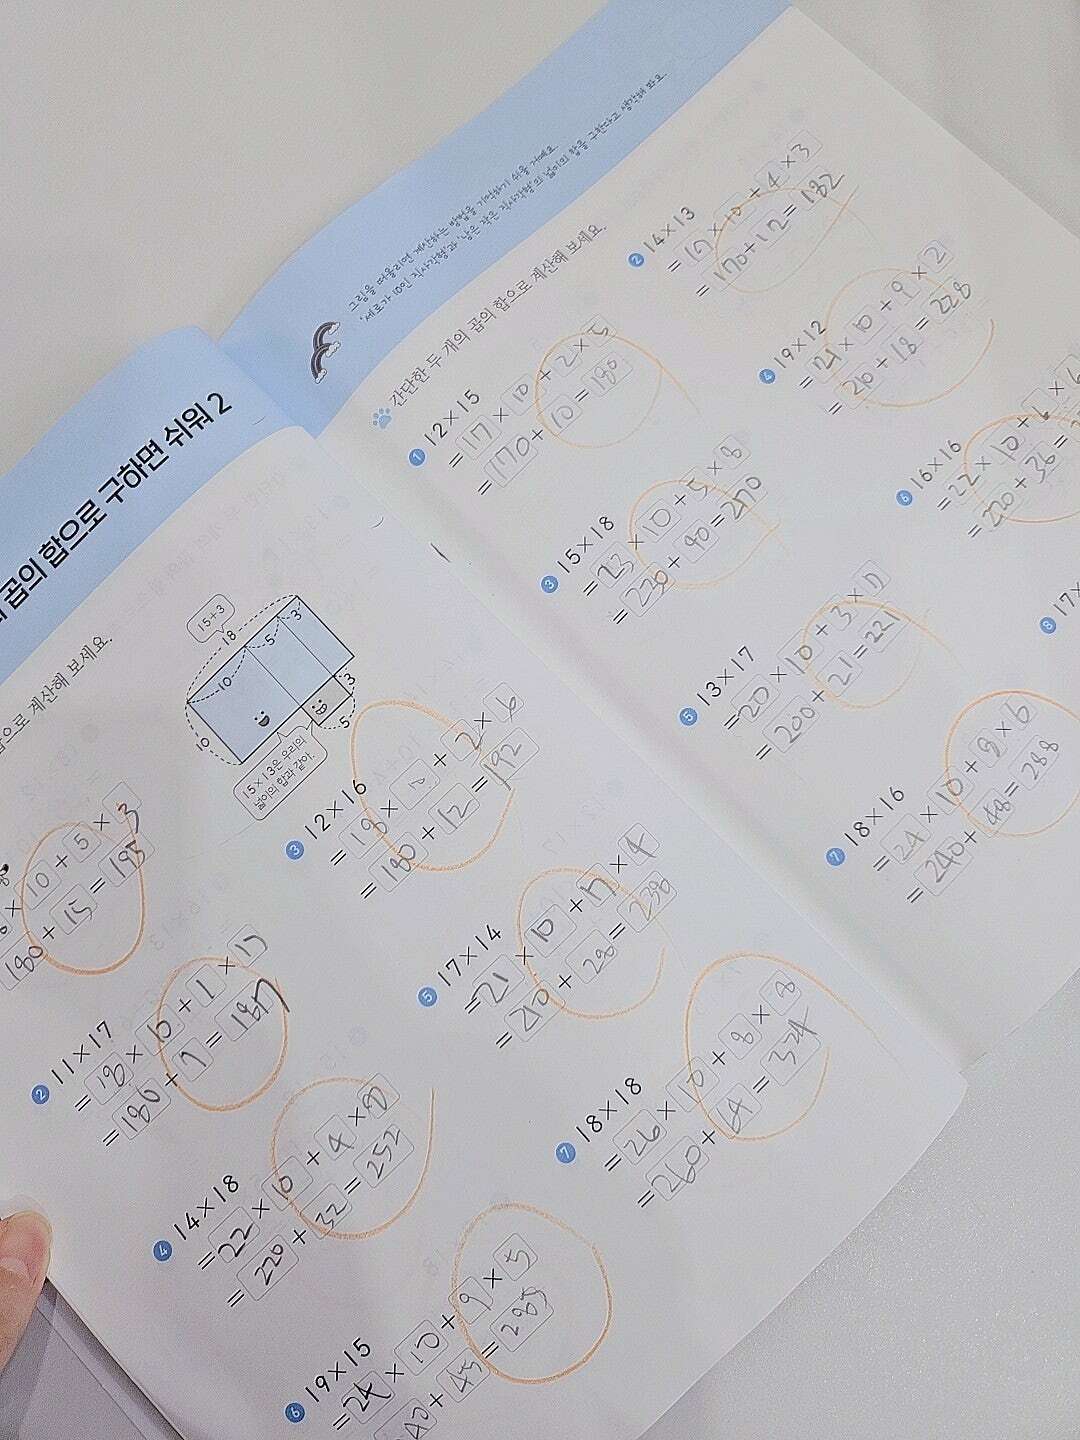 곱의 합으로 구하면 쉬워 2
합으로 계산해 보세요.
15+3
18
10
5
3
10
3
5
15×13은 우리의
넓이의 합과 같아.
×10+5×3
180+15=195
2 11×17
=18×10+1×17
=180+7=187
3 12×16
=18×10+2×6
=180+12=192
4 14×18
=22×10+4×8
=220+32=252
5 17×14
=21×10+7×4
=210+28=238
6 19×15
=24×10+9×5
+45=285
7 18×18
=26×10+8×8
=260+64=324
그림을 떠올리면 계산하는 방법을 기억하기 쉬울 거예요.
'세로가 10인 직사각형'과 '남은 작은 직사각형'의 넓이의 합을 구한다고 생각해 봐요.
간단한 두 개의 곱의 합으로 계산해 보세요.
1 12×15
=17×10+2×5
=170+10=180
2 14×13
=17×10+4×3
=170+12=182
3 15×18
=23×10+5×8
=230+40=270
4 19×12
=21×10+9×2
=210+18=228
5 13×17
=20×10+3×7
=200+21=221
6 16×16
=22×10+6×6
=220+36=
7 18×16
=24×10+8×6
=240+48=288
8 17×